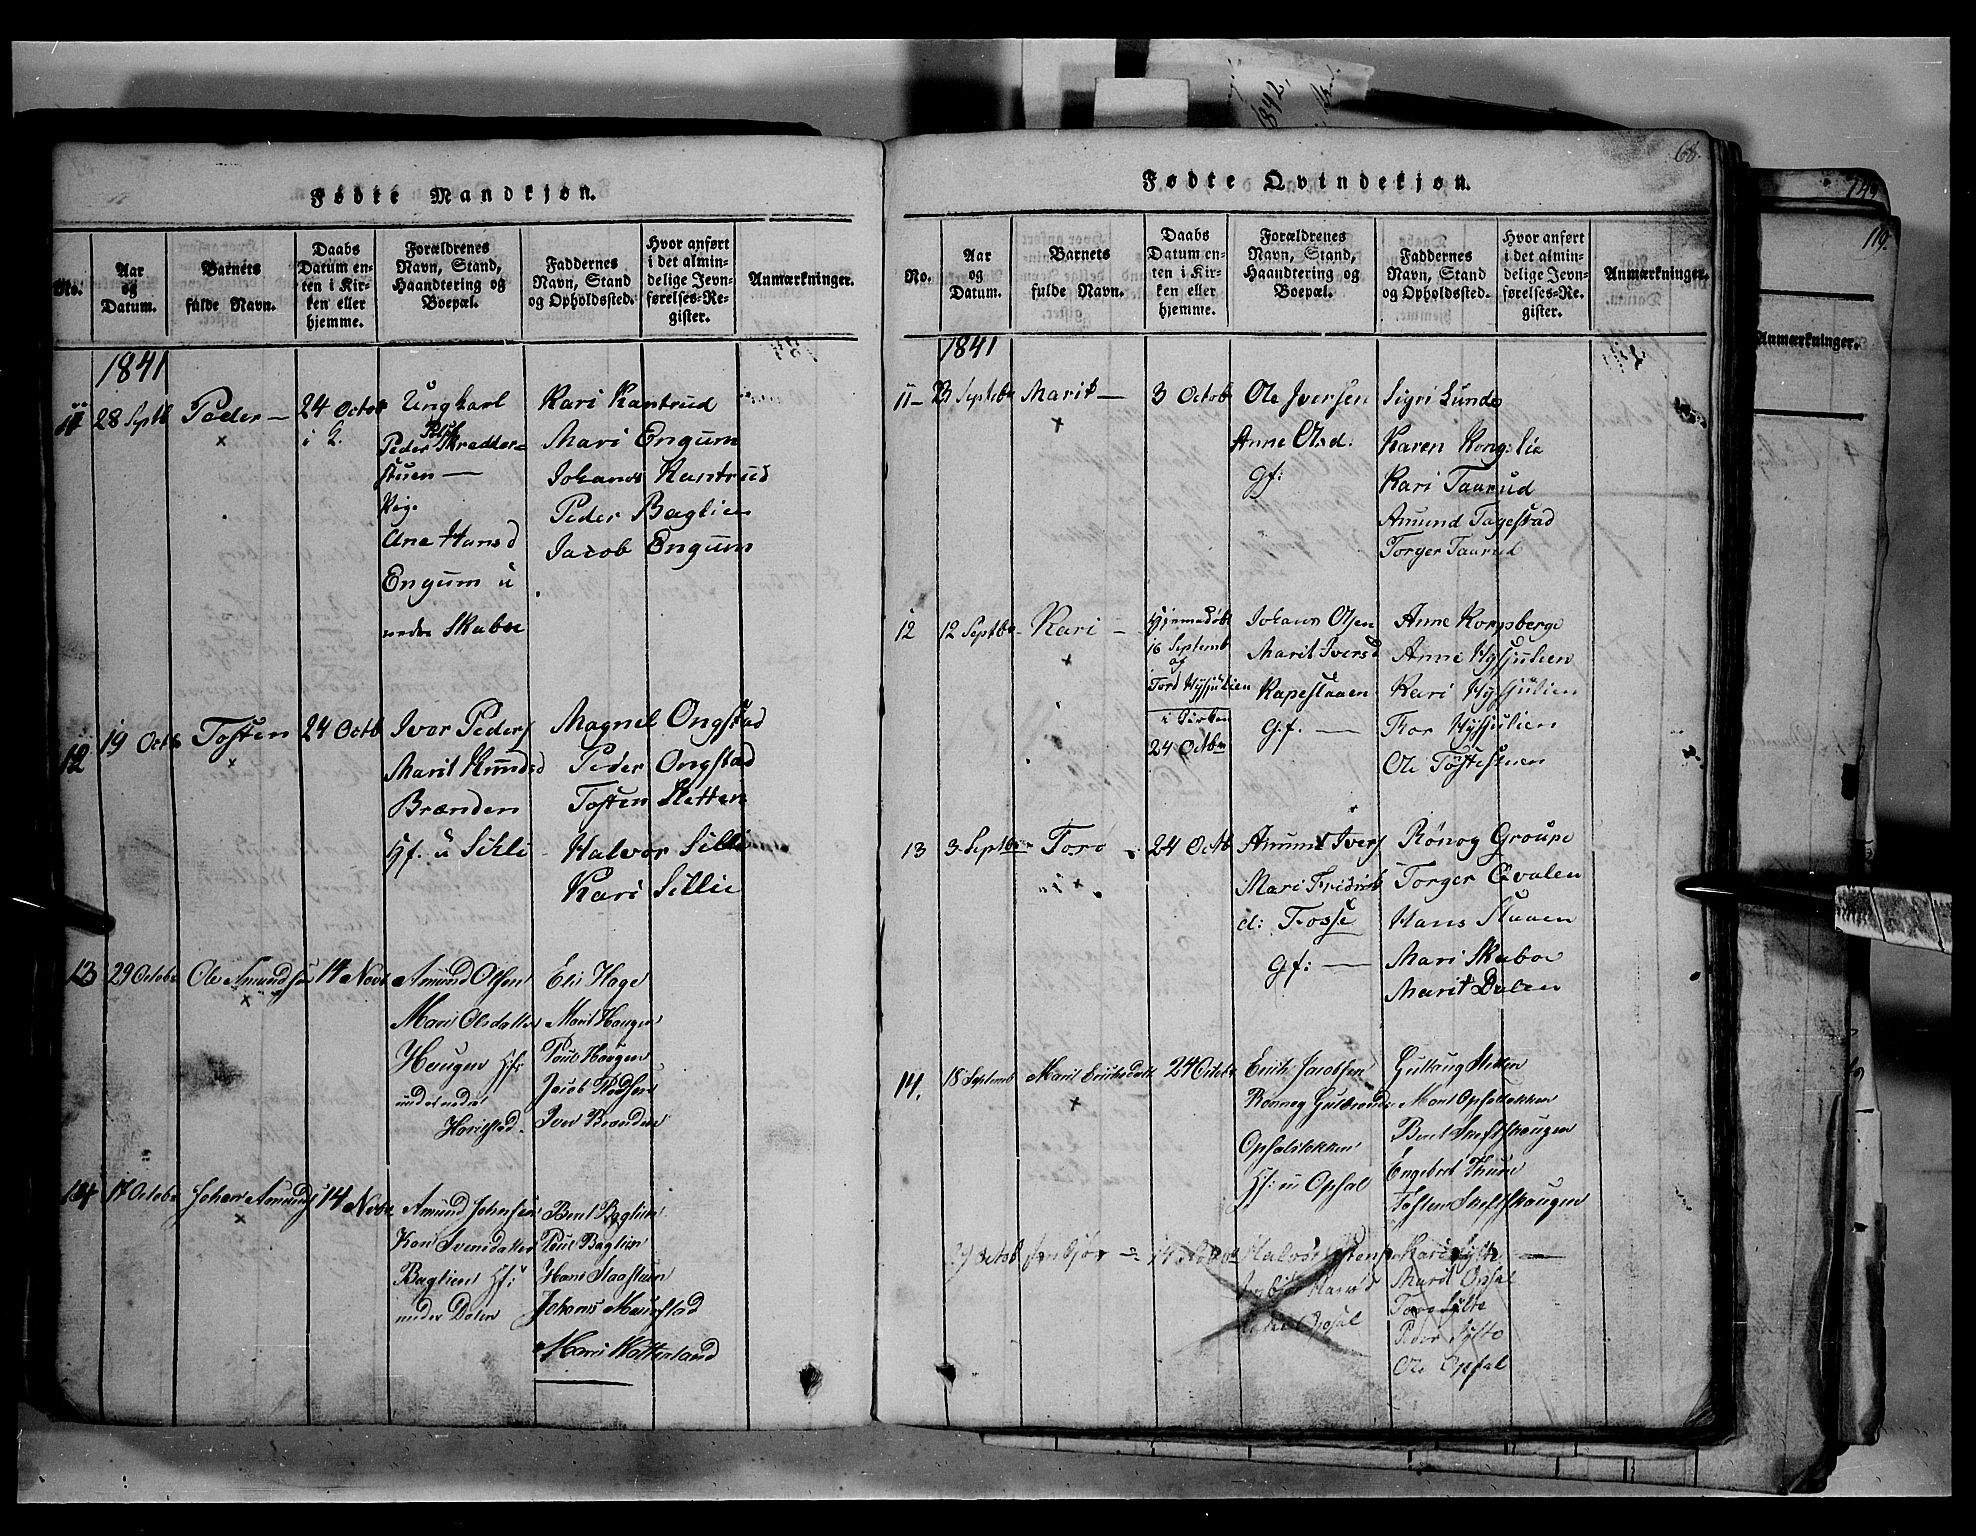 Fødte Mandkjøn.
No.
Aar og Datum.
Barnets fulde Navn.
Daabs Datum enten i Kirken eller hjemme.
Forældrenes Navn, Stand, Haandtering og Boepæl.
Faddernes Navn, Stand og Opholdssted.
Hvor anført i det almindelige Jevnførelses-Register.
Anmærkninger.
1841
11 28 Septb Peder — 24 Octob i K.
Ungkarl
Peder Skrædder-
stuen —
Pig.
Ane Hansd
Engum u
nedre Skaboe
Kari Kantrud
Mari Engum
Johans Kantrud
Peder Baglien
Jacob Engum
12 19 Octb Tosten 24 Octb
Iver Peders
Marit Knudsd
Brænden
Hf. u Sillie
Magnil Ongstad
Peder Ongstad
Tosten Sletten
Halvor Sillie
Kari Sillie
13 29 Octobr Ole Amundsen 14 Novb
Amund Olsen
Mari Olsdatter
Haugen Hf:
under nedre
Harildstad.
Eli Hage
Marit Haugen
Poul Haugen
Jacob
Iver Brænden
14 17 Octobr Johan Amunds 14 Novbr
Amund Johnsen
Kari Svensdatter
Baglien Hf:
under Dalen
Berit Baglien
Poul Baglien
Hans Staastuen
Johans
Mari Watterland
Fødte Qvindekjøn.
68.
No.
Aar og Datum.
Barnets fulde Navn.
Daabs Datum enten i Kirken eller hjemme.
Forældrenes Navn, Stand, Haandtering og Boepæl.
Faddernes Navn, Stand og Opholdssted.
Hvor anført i det almindelige Jevnførelses-Register.
Anmærkninger.
1841
11 — 23 Septebr Marit — 3 Octob
Ole Iversen
Anne Olsd:
Gf:
Sigri Lunde
Karen Kongslie
Kari Taarud
Amund Tagestad
Torger Taarud
12 12 Septbr Kari —
Hjemmedøbt
16 Septemb
af
Tord Hysjulien
i Kirken
24 Octbr
Johans Olsen
Marit Iversd
Kapestaaen
Gf. —
Anne Korpsberge
Anne Hysjulien
Kari Hysjulien
Tor Hysjulien
Ole Tostestuen
13 3 Septbr Toro 24 Octb
Amund Ivers
Mari Fridrich
d: Fosse
Gf: —
Rønog Groupe
Torger Qvalen
Hans Staaen
Mari Skaboe
Marit Dalen
14. 18 Septemb Marit Erichsdatt 24 Octobr
Erich Jacobsen
Ronneg Gulbrands
Opsalslökken
Hf: u Opsal
Guttaug Sletten
Marit Opsallökken
Berit Skeftshaugen
Engebret Thune
Tosten Skeftshaugen
Octob
Halvor
Opsal
Kari
Marit Opsal
Peder
Ole Opsal
149
119.
Anmærkninger.
1842,